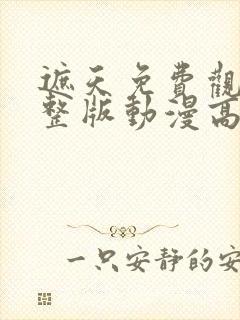 遮天免費觀
整版動漫高
一只安靜的安